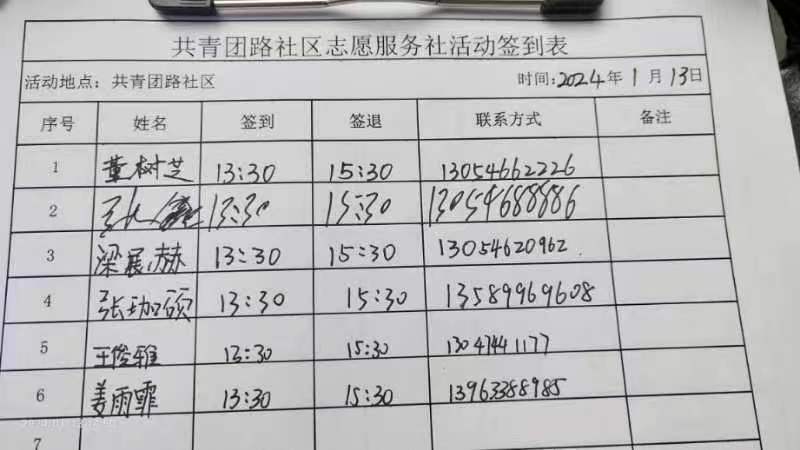 共青团路社区志愿服务社活动签到表
活动地点：共青团路社区 时间：2024年1月13日
序号 姓名 签到 签退 联系方式 备注
1 董树芝 13:30 15:30 13054662226
2 13:30 15:30 13054688886
3 梁展赫 13:30 15:30 13054620962
4 张珈硕 13:30 15:30 13589969608
5 王俊雅 13:30 15:30 13047441177
6 姜雨霏 13:30 15:30 13963388985
7